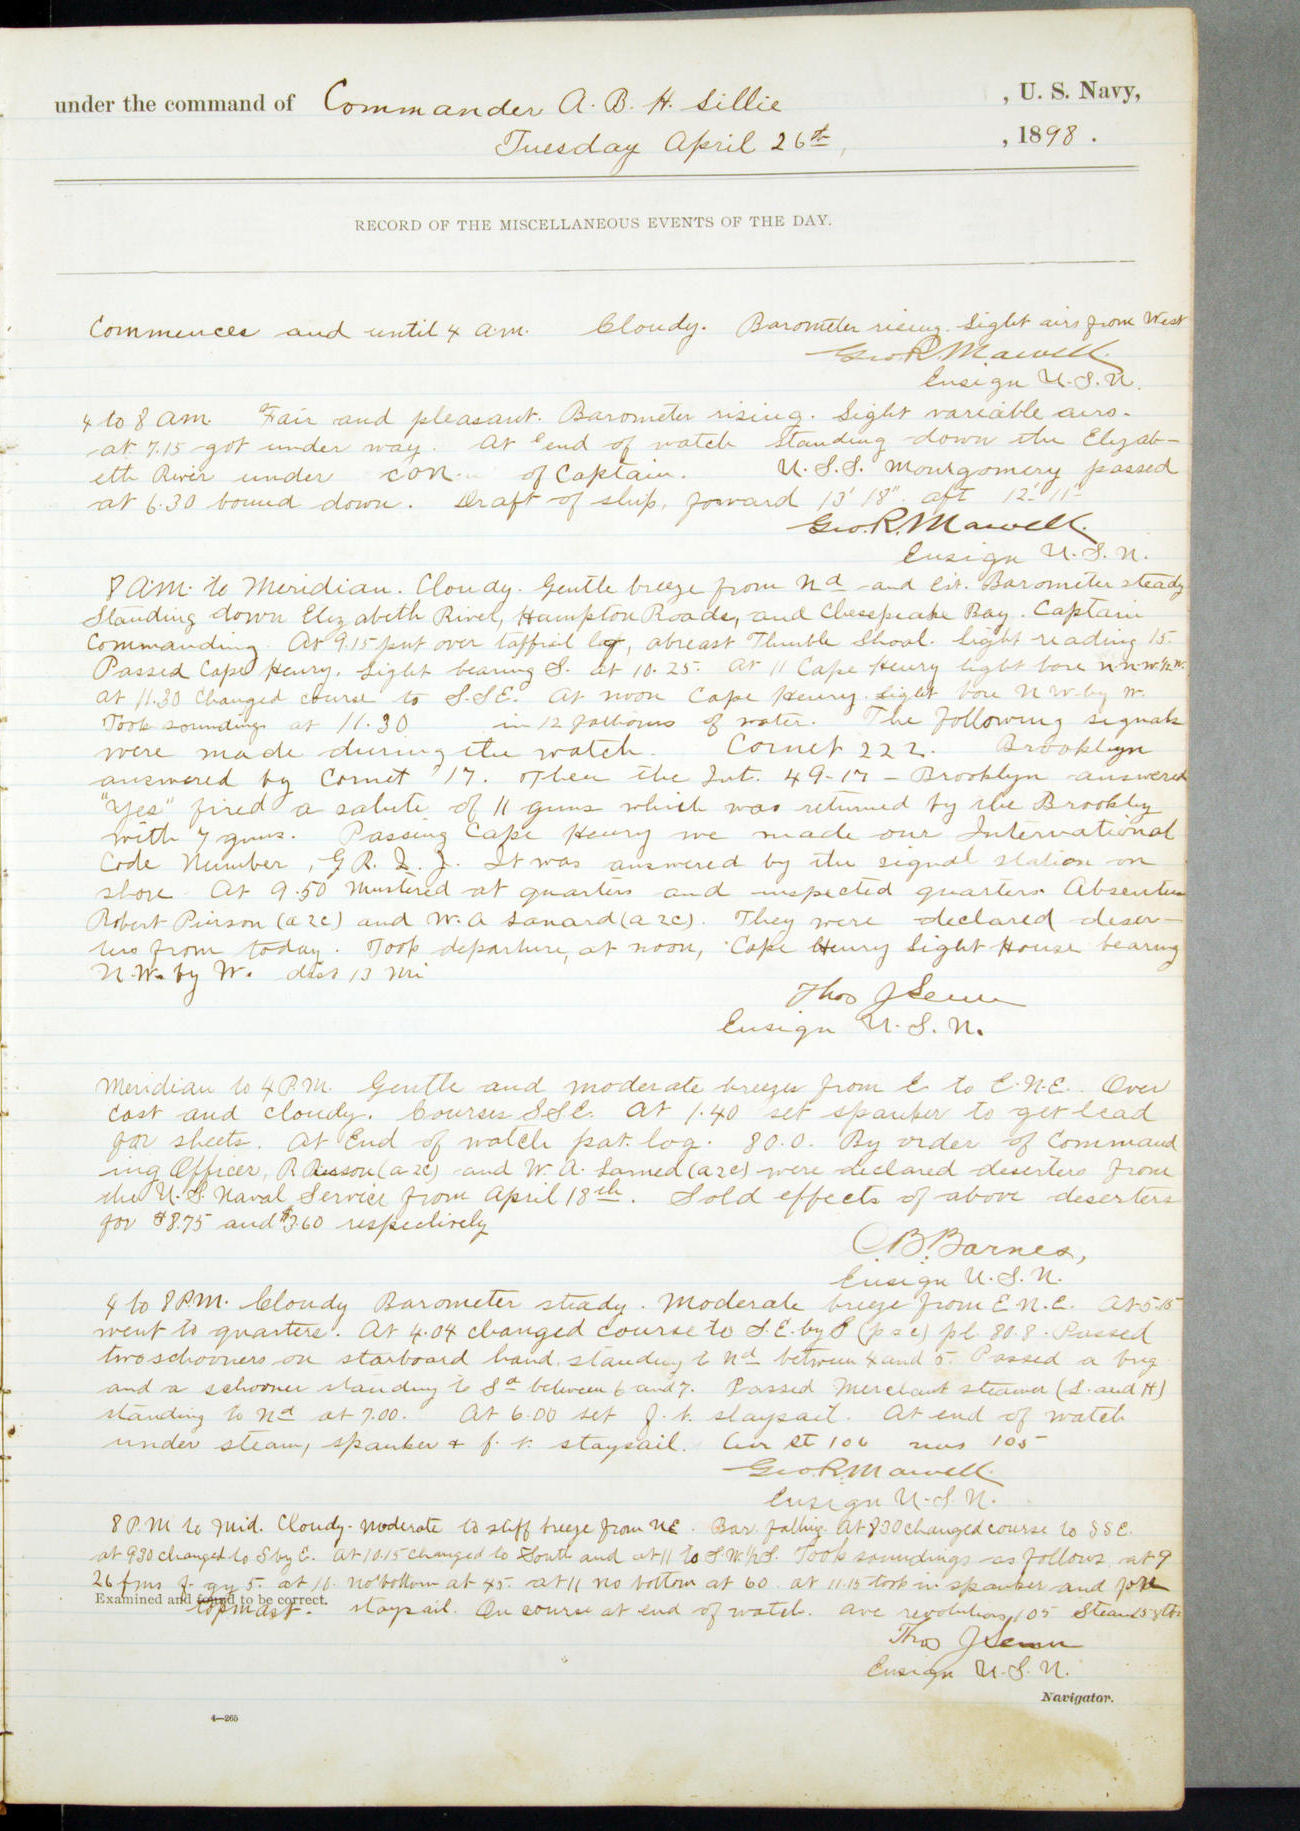 under the command of Commander A. B. H. Lillie , U. S. Navy,
Tuesday April 26th, , 1898.
RECORD OF THE MISCELLANEOUS EVENTS OF THE DAY.
Commences and until 4 a.m. Cloudy. Barometer rising. Light airs from West
Geo. R. Marvell
Ensign U.S.N.
4 to 8 a.m. Fair and pleasant. Barometer rising. Light variable airs.
at 7.15 got under way. At end of watch standing down the Elizab-
eth River under con of Captain. U.S.S. Montgomery passed
at 6.30 bound down. Draft of ship, forward 13' 18" aft 12' 11"
Geo. R. Marvell.
Ensign U.S.N.
8 A.M. to Meridian. Cloudy. Gentle breeze from Nd and Est. Barometer steady
Standing down Elizabeth River, Hampton Roads, and Chesepeake Bay. Captain
Commanding. At 9.15 put over taffrail log, abreast Thimble Shoal. Light reading 15
Passed Cape Henry. Light bearing S. at 10.25. At 11 Cape Henry light bore
at 11.30 Changed course to S.S.E. At noon Cape Henry light bore N W. by W.
Took soundings at 11.30 in 12 fathoms of water. The following signals
were made during the watch. Cornet 222. Brooklyn
answered by Cornet 17. Then the Int. 49-17 - Brooklyn answered
"Yes" fired a salute of 11 guns which was returned by the Brookly
with 7 guns. Passing Cape Henry we made our International
Code Number, G. R. Q. J. It was answered by the signal station on
shore. At 9.50 Mustered at quarters and inspected quarters. Absentees
Robert Pierson (a 2c) and W. A Lanard (a 2c). They were declared deser-
ters from today. Took departure, at noon, Cape Henry Light House bearing
N.W. by W. dist 13 mi
Thos J Senn
Ensign U.S.N.
Meridian to 4 P.M. Gentle and moderate breezes from E to E.N.E. Over
cast and cloudy. Courses S S E. At 1.40 set spanker to get lead
for sheets. At End of watch pat. log. 80.0. By order of Command
ing Officer, R. Pierson (a 2c) and W. A. Larned (a 2c) were declared deserters from
the U.S. Naval Service from April 18th. Sold effects of above deserters
for $8.75 and $3.60 respectively
C B. Barnes,
Ensign U.S.N.
4 to 8 P.M. Cloudy Barometer steady. Moderate breeze from E N.E. At 5.15
went to quarters. At 4.04 changed course to S.E. by S (p s c) p l 80.8. Passed
two schooners on starboard hand standing to Nd between 4 and 5. Passed a brig
and a schooner standing to Sd between 6 and 7. Passed Merchant steamer (L. and H)
standing to Nd at 7.00. At 6.00 set f. t. staysail. At end of watch
under steam, spanker & f. t. staysail. Av St 106 revs 105
Geo. R. Marvell
Ensign U.S.N.
8 P.M to Mid. Cloudy. Moderate to stiff breeze from NE. Bar falling. At 8 30 changed course to S S E.
at 9 30 changed to S by E. At 10.15 changed to South and at 11 to S. W. 1/2 S. Took soundings as follows, at 9
26 fms f. gy S. at 10 no bottom at 45. at 11 no bottom at 60. at 11.15 took in spanker and fore
Examined and found to be correct.
topmast. staysail. On course at end of watch. ave revolutions 105 Steam
Thos J Senn
Ensign U.S.N.
Navigator.
4—265